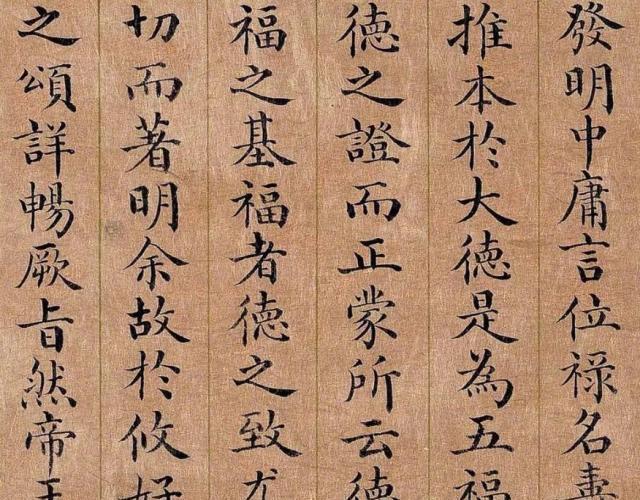 發明中庸言位祿名壽
推本於大德是為五福
德之證而正蒙所云德
福之基福者德之致尤
切而著明余故於攸好
之頌詳暢厥旨然帝王